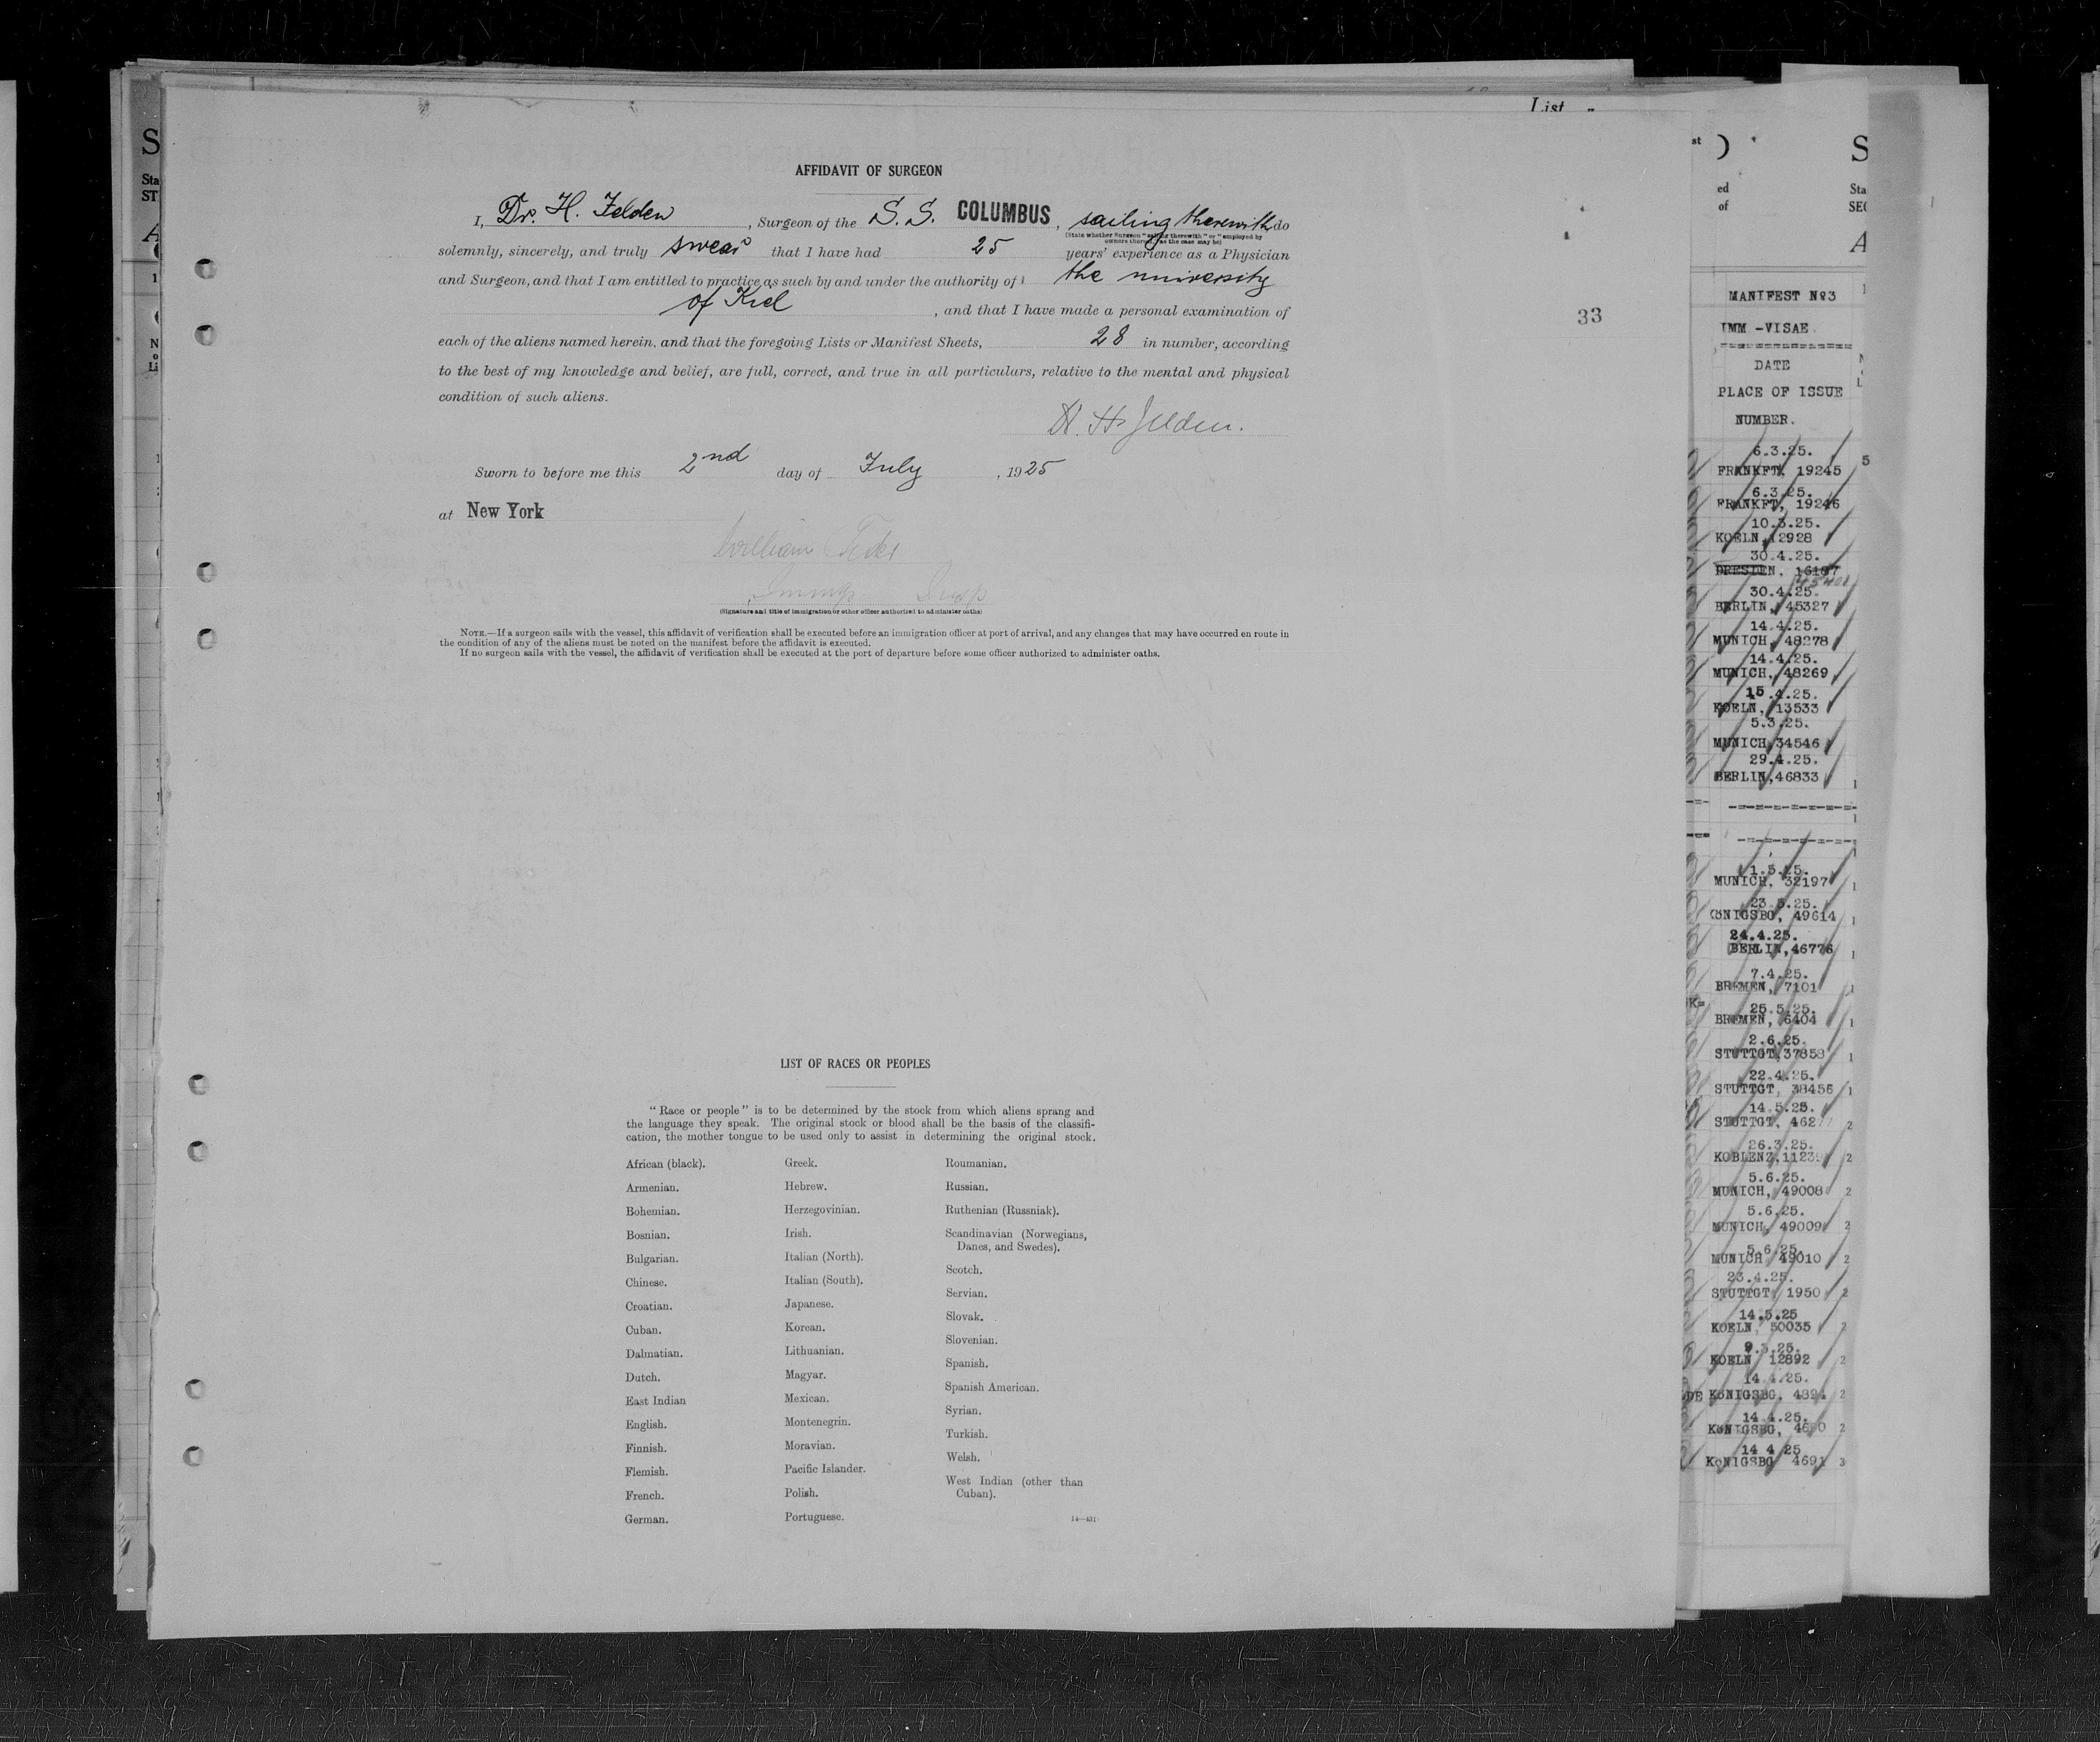 List
AFFIDAVIT OF SURGEON
I, Dr. H. Felden, Surgeon of the S.S. COLUMBUS, sailing therewith do
(State whether Surgeon "sailing therewith" or "employed by
owners thereof," as the case may be)
solemnly, sincerely, and truly swear that I have had 25 years' experience as a Physician
and Surgeon, and that I am entitled to practice as such by and under the authority of the university
of Kiel, and that I have made a personal examination of
each of the aliens named herein, and that the foregoing Lists or Manifest Sheets, 28 in number, according
to the best of my knowledge and belief, are full, correct, and true in all particulars, relative to the mental and physical
condition of such aliens.
H. Felden.
Sworn to before me this 2nd day of July, 1925
at New York
William
Immig Insp
(Signature and title of immigration or other officer authorized to administer oaths)
NOTE.—If a surgeon sails with the vessel, this affidavit of verification shall be executed before an immigration officer at port of arrival, and any changes that may have occurred en route in
the condition of any of the aliens must be noted on the manifest before the affidavit is executed.
If no surgeon sails with the vessel, the affidavit of verification shall be executed at the port of departure before some officer authorized to administer oaths.
33
LIST OF RACES OR PEOPLES
"Race or people" is to be determined by the stock from which aliens sprang and
the language they speak. The original stock or blood shall be the basis of the classifi-
cation, the mother tongue to be used only to assist in determining the original stock.
African (black).
Armenian.
Bohemian.
Bosnian.
Bulgarian.
Chinese.
Croatian.
Cuban.
Dalmatian.
Dutch.
East Indian
English.
Finnish.
Flemish.
French.
German.
Greek.
Hebrew.
Herzegovinian.
Irish.
Italian (North).
Italian (South).
Japanese.
Korean.
Lithuanian.
Magyar.
Mexican.
Montenegrin.
Moravian.
Pacific Islander.
Polish.
Portuguese.
Roumanian.
Russian.
Ruthenian (Russniak).
Scandinavian (Norwegians,
Danes, and Swedes).
Scotch.
Servian.
Slovak.
Slovenian.
Spanish.
Spanish American.
Syrian.
Turkish.
Welsh.
West Indian (other than
Cuban).
14—431
MANIFEST No3
IMM -VISAE.
DATE
PLACE OF ISSUE
NUMBER.
6.3.25.
FRANKFT, 19245
6.3.25.
FRANKFT, 19246
10.3.25.
KOELN, 12928
30.4.25.
DRESDEN,
30.4.25.
BERLIN, 45327
14.4.25.
MUNICH, 48278
14.4.25.
MUNICH, 48269
15.4.25.
KOELN, 13533
5.3.25.
MUNICH, 34546
29.4.25.
BERLIN, 46833
1.5.25.
MUNICH, 32197
23.5.25.
KÖNIGSBG, 49614
24.4.25.
BERLIN, 46776
7.4.25.
BREMEN, 7101
25.5.25.
BREMEN, 6404
2.6.25.
STUTTGT, 37858
22.4.25.
STUTTGT, 38456
14.5.25.
STUTTGT,
26.3.25.
KOBLENZ,
5.6.25.
MUNICH, 49008
5.6.25.
MUNICH, 49009
5.6.25.
MUNICH 49010
23.4.25.
STUTTGT, 1950
14.5.25
KOELN, 50035
9.3.25.
KOELN 12892
14.4.25.
KÖNIGSBG,
14.4.25.
KÖNIGSBG,
14 4 25
KÖNIGSBG 4691